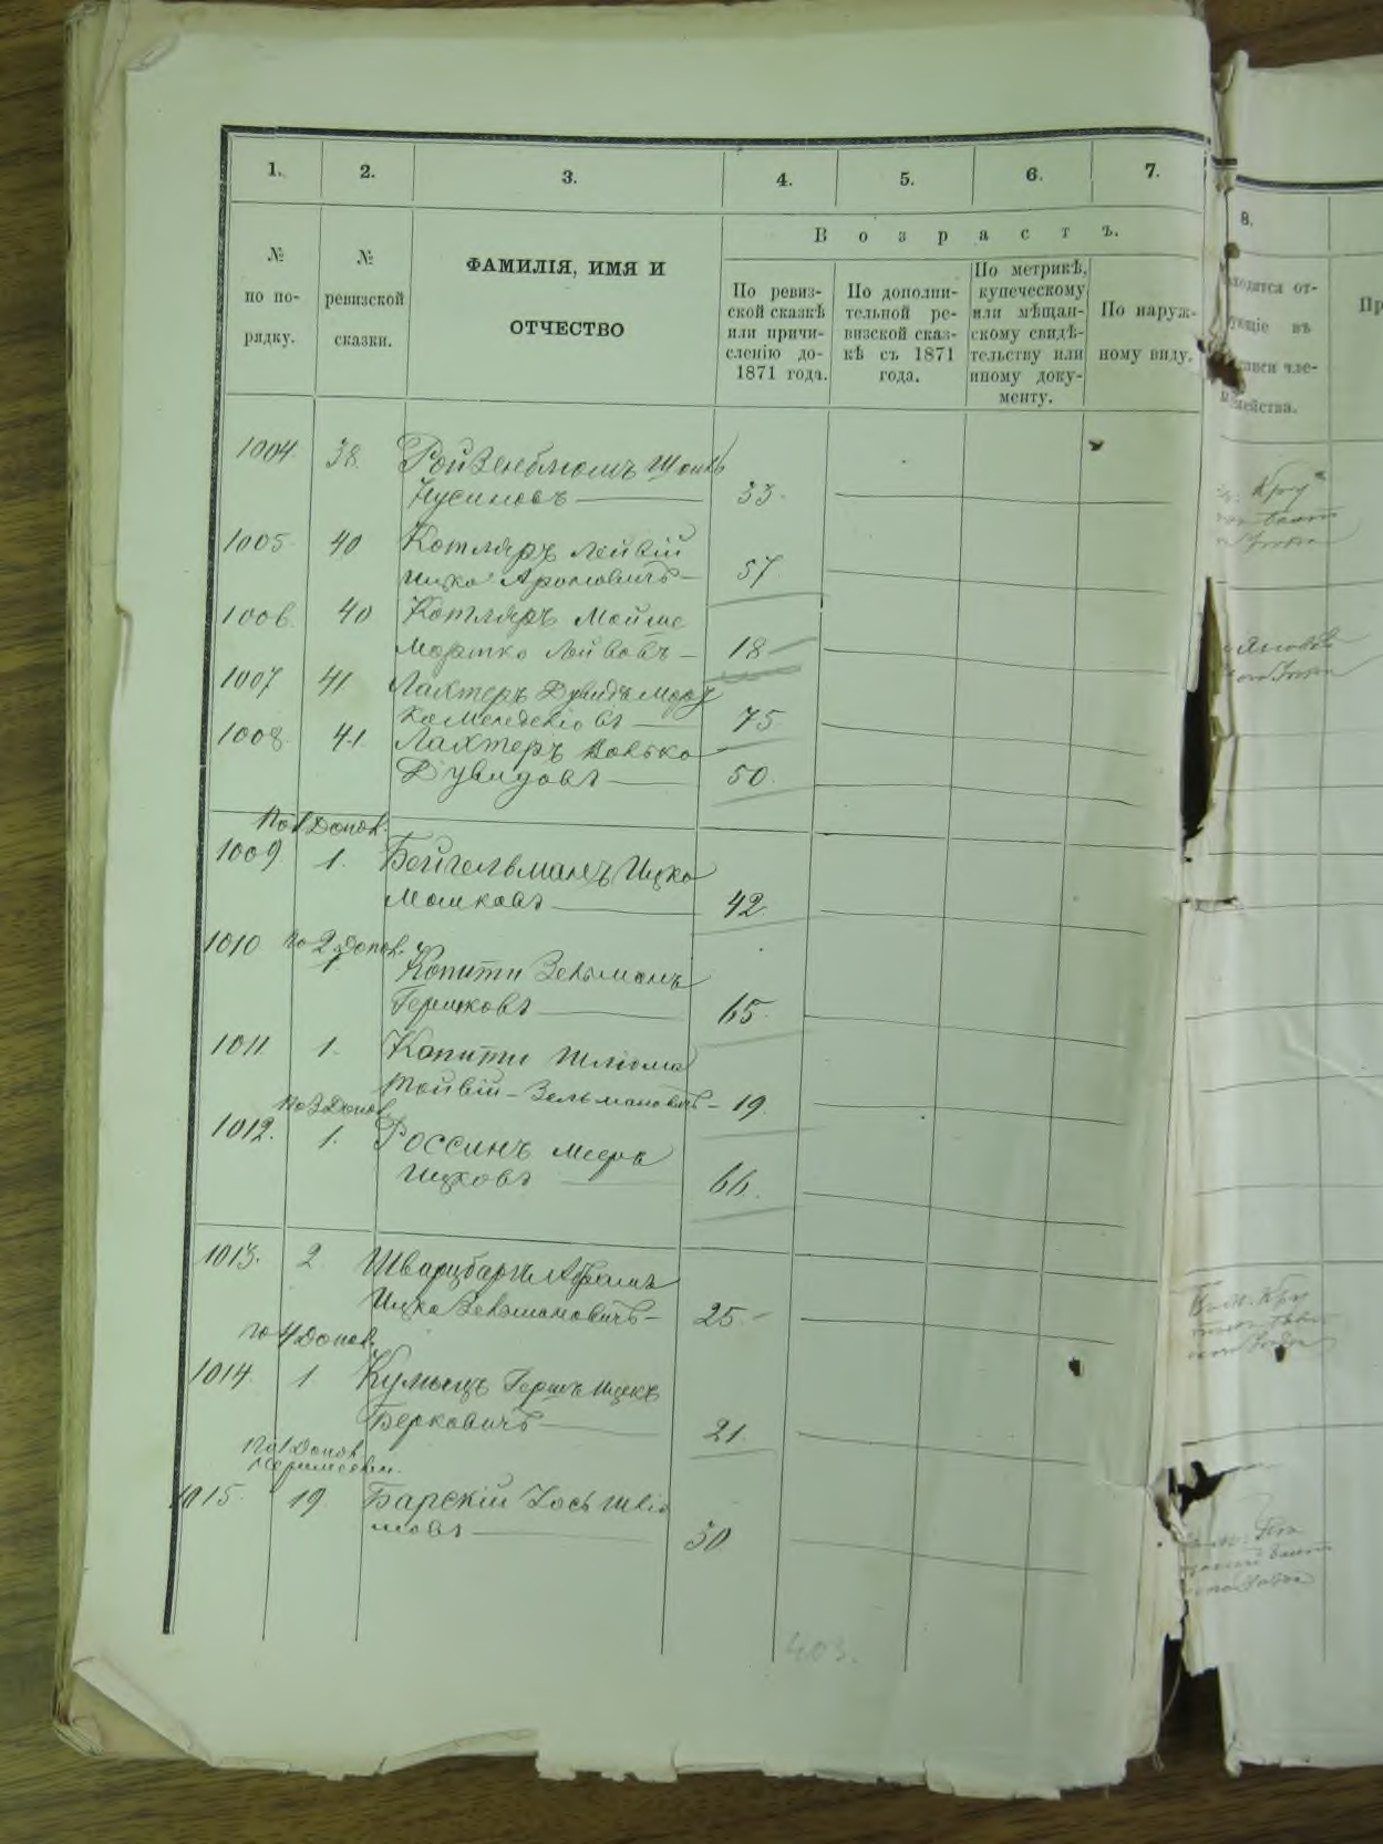 1. 2. 3. 4. 5. 6. 7.
В о з р а с т ъ.
№ по по-
рядку.
№
ревизской
сказки.
ФАМИЛІЯ, ИМЯ И
ОТЧЕСТВО
По ревиз-
ской сказкѣ
или причи-
сленію до-
1871 года.
По дополни-
тельной ре-
визской сказ-
кѣ съ 1871
года.
По метрикѣ,
купеческому
или мѣщан-
скому свидѣ-
тельству или
иному доку-
менту.
По наруж-
ному виду.
1004. 38. Ройзенблюмъ
Нусимовъ 33.
1005. 40 Котляръ Лейвій
Ицко Ароновичъ 57
1006. 40 Котляръ Мойше
Мортко Лейвовъ 18
1007 41 Лахтеръ Дувидъ Морт
ко 75
1008. 41. Лахтеръ Волько
Дувидовъ 50.
По 1 Допол.
1009 1. Бейгельманъ Ицко
Мошковъ 42
1010 по 2 Допол.
1 Копити Зельманъ
Гершковъ 65.
1011. 1. Копити Шліома
Тойвій-Зельмановичъ 19.
По 3 Допол.
1012. 1. Россинъ Мееръ
Ицковъ 66.
1013. 2 Шварцбаргъ Абрамъ
Ицко Зельмановичъ 25.
по 4 Допол.
1014 1 Гершъ Ицекъ
Берковичъ 21.
По 1 Допол.
1015. 19. Барскій Іось Шліо
мовъ 30
403.
8.
отъ-
въ
чле-
семейства.